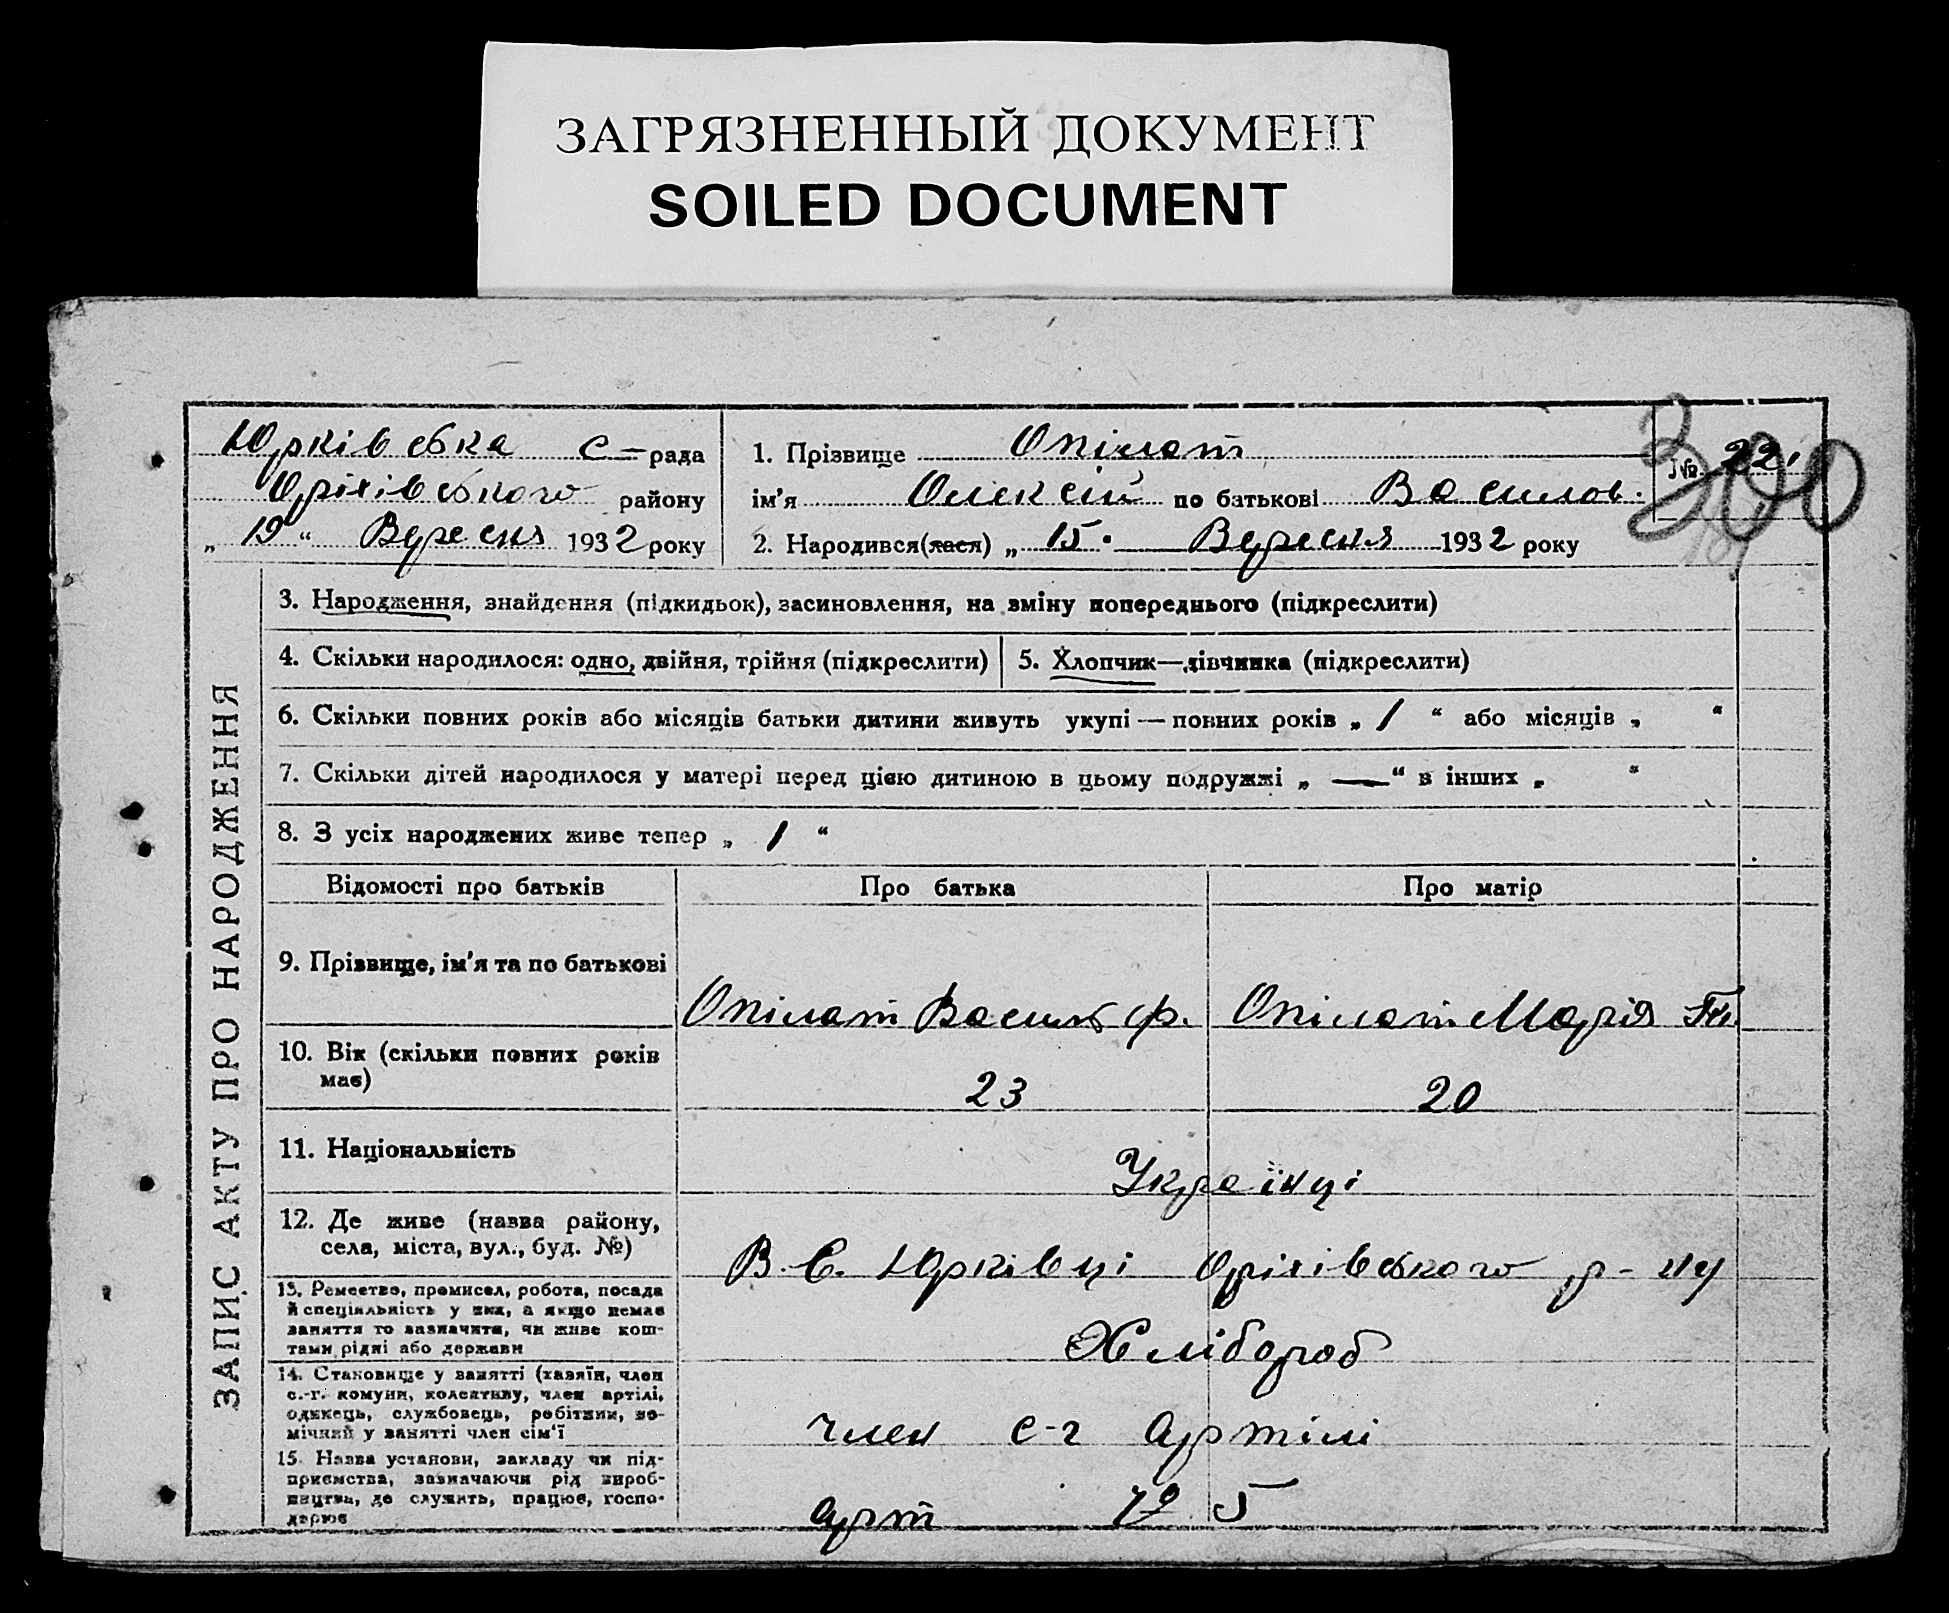 ЗАГРЯЗНЕННЫЙ ДОКУМЕНТ
SOILED DOCUMENT
Юрківська с– рада
Оріхівського району
„ 19 “ Вересня 1932 року
1. Прізвище Опілат
ім'я Олексій по батькові Василов.
2. Народився(лася) „ 15. Вересня 1932 року
№ 22.
300
ЗАПИС АКТУ ПРО НАРОДЖЕННЯ
3. Народження, знайдення (підкидьок), засиновлення, на зміну попереднього (підкреслити)
4. Скільки народилося: одно, двійня, трійня (підкреслити)
5. Хлопчик—дівчинка (підкреслити)
6. Скільки повних років або місяців батьки дитини живуть укупі — повних років „ 1 “ або місяців „ “
7. Скільки дітей народилося у матері перед цією дитиною в цьому подружжі „ — “ в інших „ “
8. З усіх народжених живе тепер „ 1 “
Відомості про батьків Про батька Про матір
9. Прізвище, ім'я та по батькові
Опілат Василь Ф. Опілат Марія
10. Вік (скільки повних років
має)
23 20
11. Національність
Українці
12. Де живе (назва району,
села, міста, вул., буд. №)
В. С. Юрківці Оріхівського р-ну
13. Ремество, промисел, робота, посада
й спеціяльність у них, а якщо немає
заняття то зазначити, чи живе кош-
тами рідні або держави
Хлібороб
14. Становище у занятті (хазяїн, член
с.-г. комуни, колективу, член артілі,
одинець, службовець, робітник, по-
мічний у занятті член сім'ї
член с-г артілі
15. Назва установи, закладу чи під-
приємства, зазначаючи рід вироб-
ництва, де служить, працює, госпо-
дарює
арт № 5